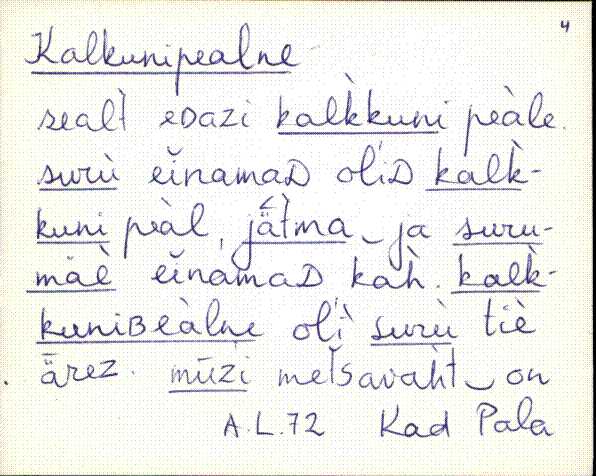 4
Kalkunipealne
sealt̀ eᴅazi kalk̀kuni peàle.
surù eĭnamaᴅ olĭ́ᴅ kalk̀-
kuni peàl, jä̆t̀ma ja suru-
mäè eĭnamaᴅ kah̀. kalk̀-
kuniʙeàlne olĭ̀ surù tiè
ǟrez. mūzi met̆savah̀t on
A.L.72 Kad Pala